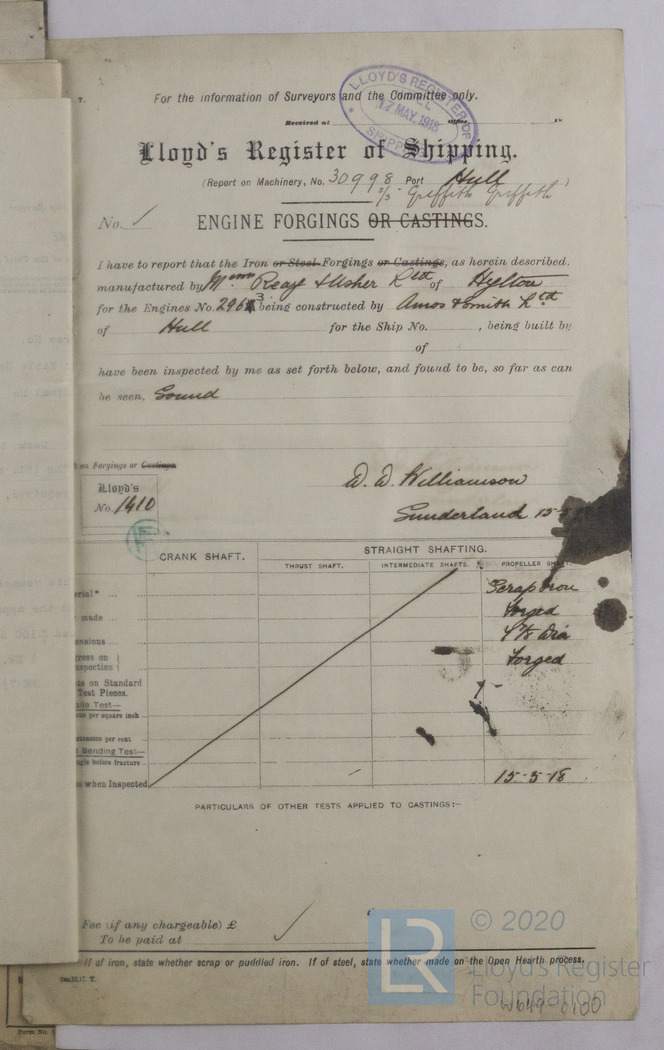 T.
For the information of Surveyors and the Committee only.
LLOYD'S REGISTER OF
HULL
17 MAY. 1918
SHIPPING
Received at Office 19
Lloyd's Register of Shipping.
(Report on Machinery, No. 30998 Port Hull )
S/S "Griffith Griffith
No. ✓
ENGINE FORGINGS OR CASTINGS.
I have to report that the Iron or Steel Forgings or Castings, as herein described,
manufactured by Messrs Reay & Usher Ltd of Hylton
for the Engines No. 2963 being constructed by Amos & Smith Ltd
of Hull for the Ship No. , being built by
of
have been inspected by me as set forth below, and found to be, so far as can
be seen, Sound
on Forgings or Castings.
Lloyd's
No. 1410
D. D. Williamson
Sunderland 15-5
CRANK SHAFT.
STRAIGHT SHAFTING.
THRUST SHAFT. INTERMEDIATE SHAFTS. PROPELLER SHAFT
erial* ... Scrap Iron
made ... Forged
ensions ... 4⅞ Dia
gress on Forged
spection
ts on Standard
Test Pieces.
sile Test—
ons per square inch
xtension per cent
d Bending Test—
ngle before fracture
s when Inspected 15-5-18
PARTICULARS OF OTHER TESTS APPLIED TO CASTINGS:—
Fee (if any chargeable) £
To be paid at
If of iron, state whether scrap or puddled iron. If of steel, state whether made on the Open Hearth process.
T.
Form No.
LR
© 2020
Lloyd's Register
Foundation
W649-0100